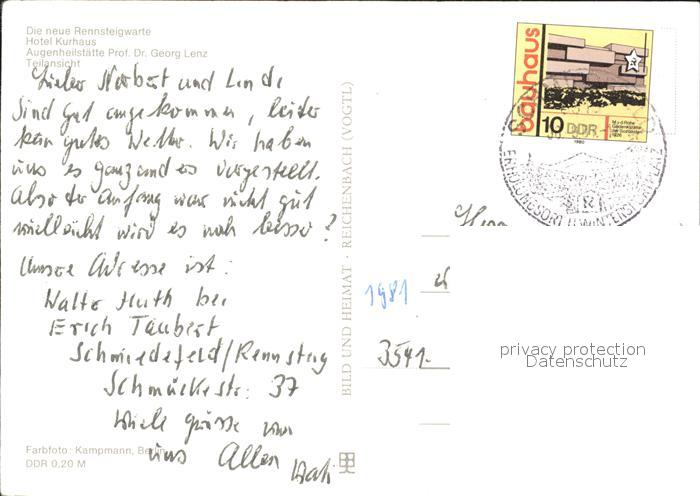 Die neue Rennsteigwarte
Hotel Kurhaus
Augenheilstätte Prof. Dr. Georg Lenz
Teilansicht
Lieber Norbert und Linda
Sind gut angekommen, leider
kein gutes Wetter. Wir haben
uns es ganz anders vorgestellt.
Also der Anfang war nicht gut
vielleicht wird es noch besser?
Unsere Adresse ist:
Walter Huth bei
Erich Taubert
Schmiedefeld/Rennsteig
Schmückestr: 37
Viele grüsse von
uns Allen
Farbfoto: Kampmann, Berlin
DDR 0,20 M
BILD UND HEIMAT · REICHENBACH (VOGTL)
bauhaus
10 DDR
1980
ERHOLUNGSORT U. WINTERSPORTPLATZ
1981
3541-
privacy protection
Datenschutz